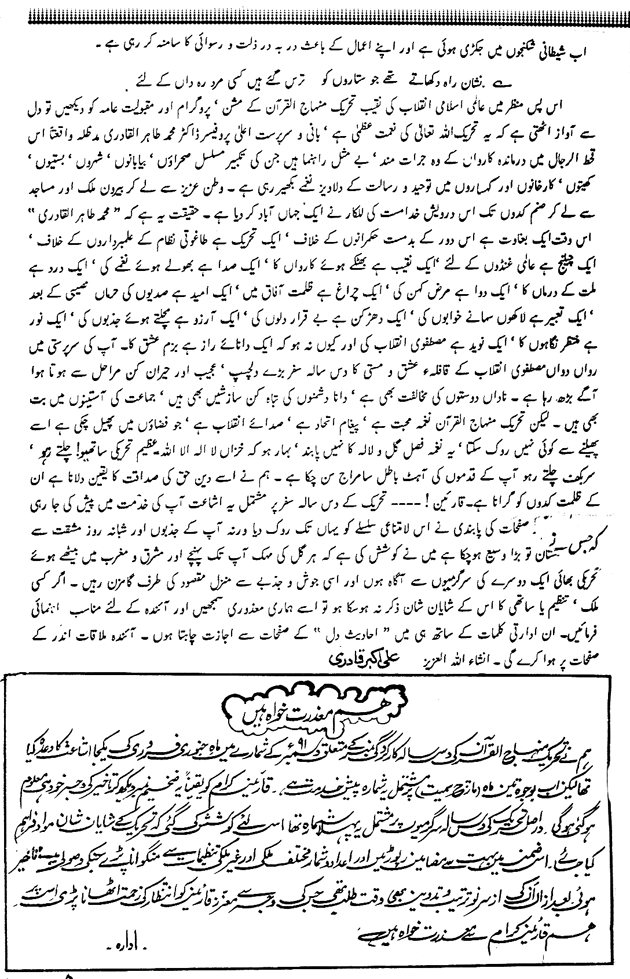 اب شیطانی شکنجوں میں جکڑی ہوئی ہے اور اپنے اعمال کے باعث در بہ در ذلت و رسوائی کا سامنہ کر رہی ہے ۔
نشان راہ دکھاتے تھے جو ستاروں کو ترس گئے ہیں کسی مرد راہ داں کے لئے
اس پس منظر میں عالمی اسلامی انقلاب کی نقیب تحریک منہاج القرآن کے مشن ' پروگرام اور مقبولیت عامہ کو دیکھیں تو دل
سے آواز اٹھتی ہے کہ یہ تحریک اللہ تعالٰی کی نعمت عظمٰی ہے ' بانی و سرپرست اعلیٰ پروفیسر ڈاکٹر محمد طاہر القادری مدظلہ واقعتاً اس
قحط الرجال میں درماندہ کارواں کے وہ جرات مند ' بے مثل راہنما ہیں جن کی تکبیر مسلسل صحراؤں ' بیابانوں ' شہروں ' بستیوں '
کھیتوں ' کارخانوں اور کہساروں میں توحید و رسالت کے دلاویز نغمے بکھیر رہی ہے ۔ وطن عزیز سے لے کر بیرون ملک اور مساجد
سے لے کر صنم کدوں تک اس درویش خدامست کی للکار نے ایک جہاں آباد کر دیا ہے ۔ حقیقت یہ ہے کہ " محمد طاہر القادری "
اس وقت ایک بغاوت ہے اس دور کے بدمست حکمرانوں کے خلاف ' ایک تحریک ہے طاغوتی نظام کے علمبرداروں کے خلاف '
ایک چیلنج ہے عالمی غنڈوں کے لئے ' ایک نقیب ہے بھٹکے ہوئے کارواں کا ' ایک صدا ہے بھولے ہوئے نغمے کی ' ایک درد ہے
ملت کے درماں کا ' ایک دوا ہے مرض کہن کی ' ایک چراغ ہے ظلمت آفاق میں ' ایک امید ہے صدیوں کی حرماں نصیبی کے بعد
' ایک تعبیر ہے لاکھوں سہانے خوابوں کی ' ایک دھڑکن ہے بے قرار دلوں کی ' ایک آرزو ہے مچلتے ہوئے جذبوں کی ' ایک نور
ہے منتظر نگاہوں کا ' ایک نوید ہے مصطفوی انقلاب کی اور کیوں نہ ہو کہ ایک دانائے راز ہے بزم عشق کا۔ آپ کی سرپرستی میں
رواں دواں مصطفوی انقلاب کے قافلہء عشق و مستی کا دس سالہ سفر بڑے دلچسپ ' عجیب اور حیران کن مراحل سے ہوتا ہوا
آگے بڑھ رہا ہے ۔ ناداں دوستوں کی مخالفت بھی ہے ' دانا دشمنوں کی تباہ کن سازشیں بھی ہیں ' جماعت کی آستینوں میں بت
بھی ہیں ۔ لیکن تحریک منہاج القرآن نغمہ محبت ہے ' پیغام اتحاد ہے ' صدائے انقلاب ہے ' جو فضاؤں میں پھیل چکی ہے اسے
پھیلنے سے کوئی نہیں روک سکتا ' یہ نغمہ فصل گل و لالہ کا نہیں پابند ' بہار ہو کہ خزاں لا الہ الا اللہ عظیم تحریکی ساتھیو! چلتے رہو '
سربکف چلتے رہو آپ کے قدموں کی آہٹ باطل سامراج سن چکا ہے ۔ ہم نے اسے دین حق کی صداقت کا یقین دلانا ہے ان
کے ظلمت کدوں کو گرانا ہے۔ قارئین ! ---- تحریک کے دس سالہ سفر پر مشتمل یہ اشاعت آپ کی خدمت میں پیش کی جا رہی
صفحات کی پابندی نے اس لامتناہی سلسلے کو یہاں تک روک دیا ورنہ آپ کے جذبوں اور شبانہ روز مشقت سے
تو بڑا وسیع ہوچکا ہے میں نے کوشش کی ہے کہ ہر گل کی مہک آپ تک پہنچے اور مشرق و مغرب میں بیٹھے ہوئے
تحریکی بھائی ایک دوسرے کی سرگرمیوں سے آگاہ ہوں اور اسی جوش و جذبے سے منزل مقصود کی طرف گامزن رہیں ۔ اگر کسی
ملک ' تنظیم یا ساتھی کا اس کے شایان شان ذکر نہ ہوسکا ہو تو اسے ہماری معذوری سمجھیں اور آئندہ کے لئے مناسب راہنمائی
فرمائیں۔ ان ادارتی کلمات کے ساتھ ہی میں " احادیث دل " کے صفحات سے اجازت چاہتا ہوں ۔ آئندہ ملاقات اندر کے
صفحات پر ہوا کرے گی ۔ انشاء اللہ العزیز علی اکبر قادری
ہم معذرت خواہ ہیں
ہم نے تحریک منہاج القرآن کی دس سالہ کارکردگی کے متعلق دسمبر ۹۱ء کے شمارے میں ماہ جنوری فروری کی یکجا اشاعت کا وعدہ کیا
تھا لیکن اب بوجوہ تین ماہ (مارچ سمیت) پر مشتمل یہ شمارہ پیش خدمت ہے۔ قارئین کرام کو یقیناً یہ ضخیم نمبر دیکھ کر تاخیر کی وجہ خود ہی معلوم
ہو گئی ہوگی۔ دراصل تحریک کی دس سالہ سرگرمیوں پر مشتمل یہ پہلا شمارہ تھا اس لئے کوشش کی گئی کہ تحریک کے شایان شان مواد فراہم
کیا جائے۔ اس ضمن میں بہت سے مضامین رپورٹیں اور اعداد و شمار مختلف ملکی اور غیر ملکی تنظیمات سے منگوانا پڑے جنکی وصولی میں تاخیر
ہوئی بعد ازاں ان کی از سر نو ترتیب و تدوین بھی وقت طلب تھی جس کی وجہ سے معزز قارئین کو انتظار کی زحمت اٹھانا پڑی اس پر
ہم قارئین کرام سے معذرت خواہ ہیں ۔ ادارہ ۔